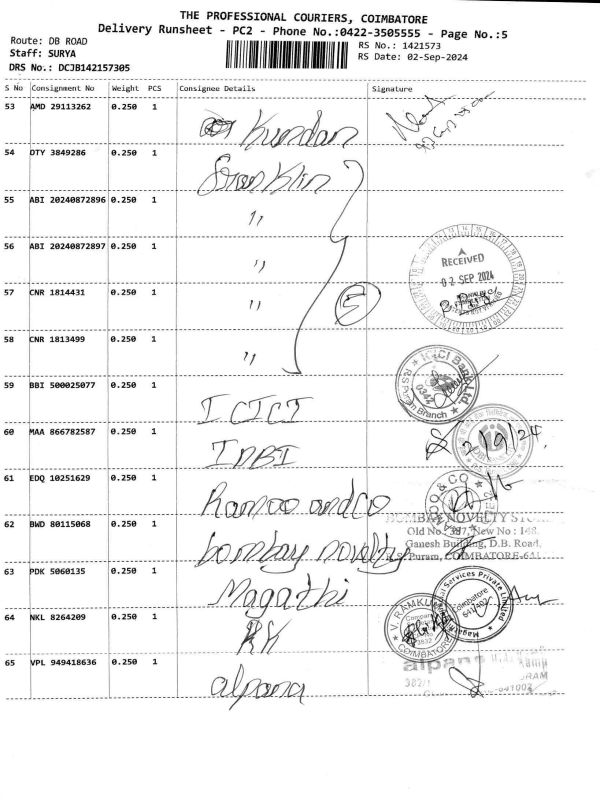 THE PROFESSIONAL COURIERS, COIMBATORE
Delivery Runsheet - PC2 - Phone No.:0422-3505555 - Page No.:5
Route: DB ROAD
RS No.: 1421573
Staff: SURYA
RS Date: 02-Sep-2024
DRS No.: DCJB142157305
S No Consignment No Weight PCS Consignee Details Signature
53 AMD 29113262 0.250 1 Kundan
54 DTY 3849286 0.250 1 Franklin
55 ABI 20240872896 0.250 1 "
56 ABI 20240872897 0.250 1 "
RECEIVED
02 SEP 2024
57 CNR 1814431 0.250 1 " 5
58 CNR 1813499 0.250 1 "
ICICI Bank Ltd.
0344
R S Puram Branch
59 BBI 500025077 0.250 1 ICICI
60 MAA 866782587 0.250 1 IDBI 2/9/24
61 EDQ 10251629 0.250 1 Ramco and co
RAMCO & CO
62 BWD 80115068 0.250 1 bombay novelty
BOMBAY NOVELTY
Old No : 387, New No : 148,
Ganesh Building, D.B. Road,
R.S. Puram, COIMBATORE-641
63 PDK 5060135 0.250 1 Magathi
Services Private Limited
Coimbatore
64 NKL 8264209 0.250 1 RK
V. RAMKU
COIMBATORE
65 VPL 949418636 0.250 1 alpana
alpana
641002